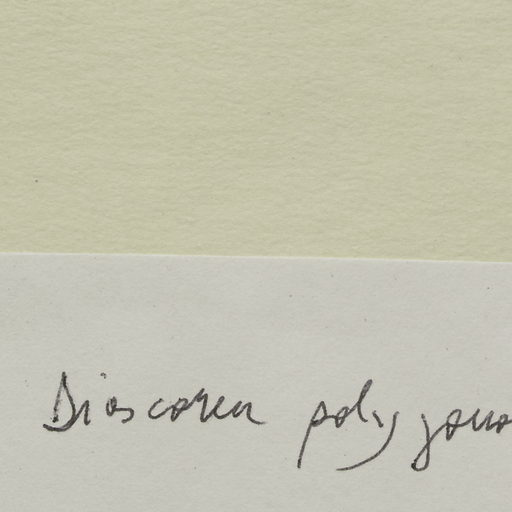 Dioscorea polygono